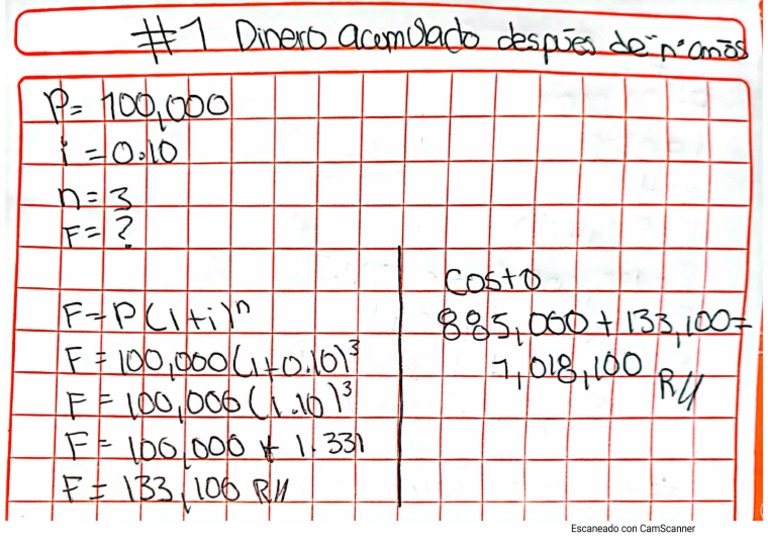 #1 Dinero acumulado después de "n" años
P= 100,000
i = 0.10
n = 3
F= ?
F= P(1+i)^n
F = 100,000(1+0.10)^3
F = 100,000(1.10)^3
F = 100,000 * 1.331
F = 133,100 R//
Costo
885,000 + 133,100=
1,018,100 R//
Escaneado con CamScanner